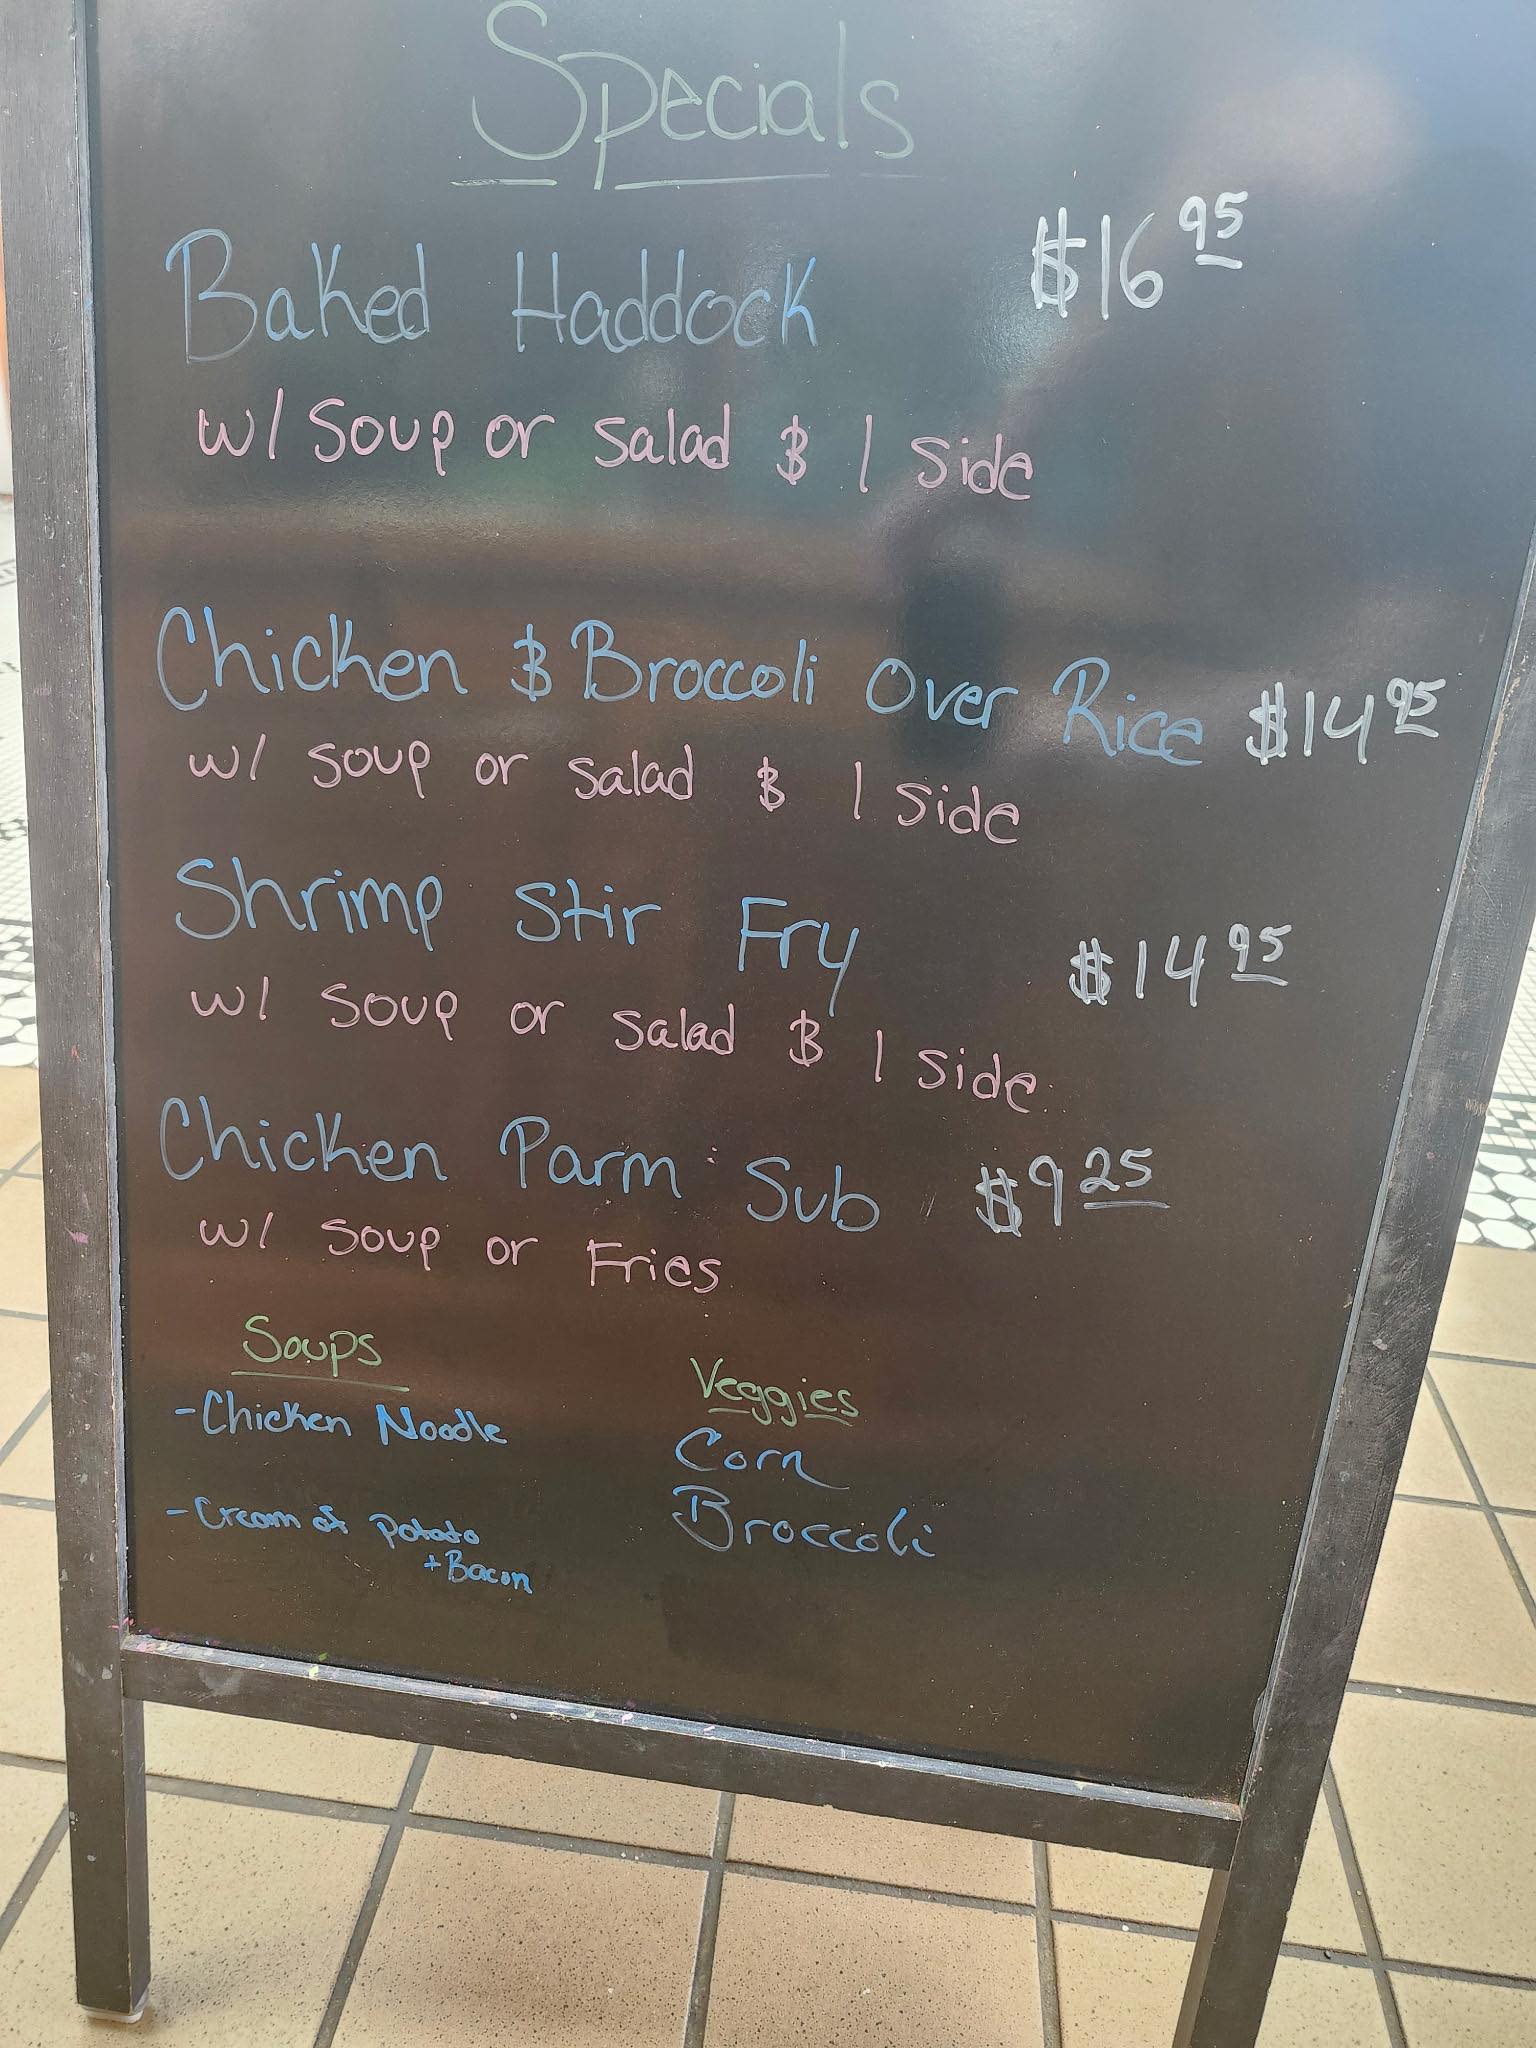 Specials
Baked Haddock $16 95
w/ Soup or Salad & 1 Side
Chicken & Broccoli Over Rice $14 95
w/ Soup or Salad & 1 Side
Shrimp Stir Fry $14 95
w/ Soup or Salad & 1 Side
Chicken Parm Sub $9 25
w/ Soup or Fries
Soups
-Chicken Noodle
-Cream of Potato
+ Bacon
Veggies
Corn
Broccoli